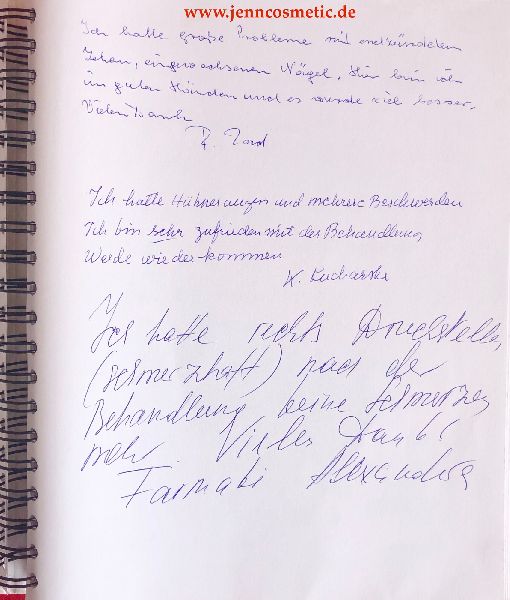 www.jenncosmetic.de
Ich hatte große Probleme mit entzündeten
Zehen, eingewachsenen Nägel. Hier bin ich
in guten Händen und es wurde viel besser.
Vielen Dank
Ich hatte Hühneraugen und mehrere Beschwerden
Ich bin sehr zufrieden mit der Behandlung
Werde wieder kommen
K. Kucharska
Ich hatte rechts Druckstelle,
(schmerzhaft) nach der
Behandlung keine Schmerzen
mehr. Vielen Danke
Farmati Alexandra